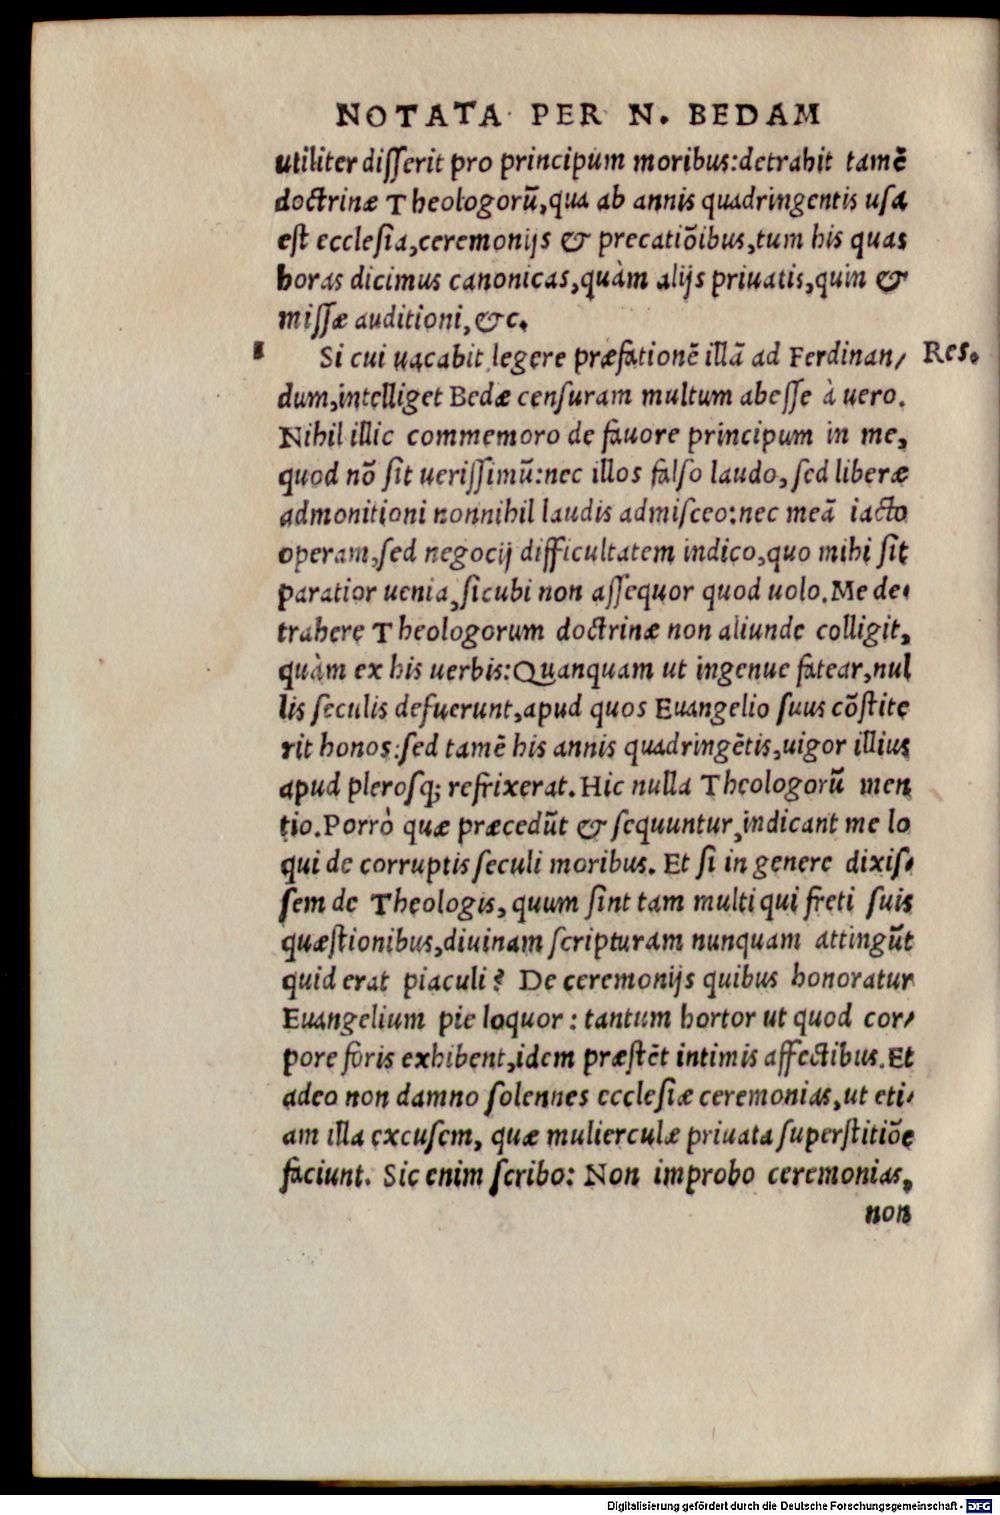 NOTATA PER N. BEDAM
utiliter disserit pro principum moribus:detrahit tamē
doctrinæ Theologorū,qua ab annis quadringentis usa
est ecclesia,ceremonijs & precatiōibus,tum his quas
horas dicimus canonicas,quàm alijs priuatis,quin &
missæ auditioni,&c.
Si cui uacabit legere præfationē illā ad Ferdinan/ Res.
dum,intelliget Bedæ censuram multum abesse à uero.
Nihil illic commemoro de fauore principum in me,
quod nō sit uerissimū:nec illos falso laudo, sed liberæ
admonitioni nonnihil laudis admisceo:nec meā iacto
operam,sed negocij difficultatem indico,quo mihi sit
paratior uenia, sicubi non assequor quod uolo.Me de/
trahere Theologorum doctrinæ non aliunde colligit,
quàm ex his uerbis:Quanquam ut ingenue fatear,nul
lis seculis defuerunt,apud quos Euangelio suus cōstite
rit honos:sed tamē his annis quadringētis,uigor illius
apud plerosq; refrixerat. Hic nulla Theologorū men
tio.Porrò quæ præcedūt & sequuntur,indicant me lo
qui de corruptis seculi moribus. Et si in genere dixis/
sem de Theologis, quum sint tam multi qui freti suis
quæstionibus,diuinam scripturam nunquam attingūt
quid erat piaculi? De ceremonijs quibus honoratur
Euangelium pie loquor : tantum hortor ut quod cor/
pore foris exhibent,idem præstēt intimis affectibus.Et
adeo non damno solennes ecclesiæ ceremonias,ut eti/
am illa excusem, quæ mulierculæ priuata superstitiōe
faciunt. Sic enim scribo: Non improbo ceremonias,
non
Digitalisierung gefördert durch die Deutsche Forschungsgemeinschaft - DFG